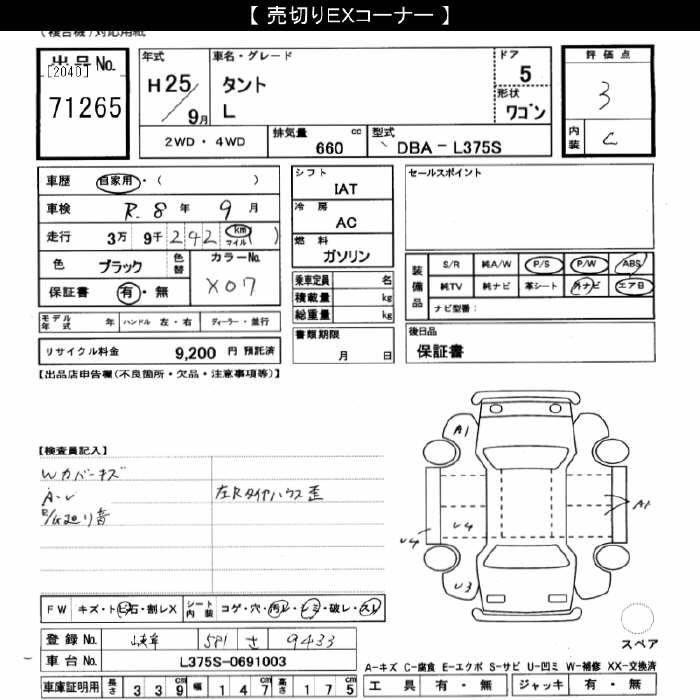 【 売切りEXコーナー 】
(複合機)対応用紙
出品No.
[2040]
71265
年式
H25/9月
車名・グレード
タント
L
ドア
5
形状
ワゴン
評価点
3
内装
C
2WD・4WD
排気量 cc
660
型式
DBA-L375S
車歴 自家用・( )
車検 R.8年 9月
走行 3万 9千 242 km マイル )
色 ブラック
色替
カラーNo.
X07
保証書 有・無
シフト
IAT
冷房
AC
燃料
ガソリン
乗車定員 名
積載量 kg
総重量 kg
書類期限
月 日
セールスポイント
装備品
S/R 純A/W P/S P/W ABS
純TV 純ナビ 革シート 外ナビ エアB
ナビ型番:
後日品
保証書
モデル年式 年 ハンドル 左・右 ディーラー・並行
リサイクル料金 9,200 円 預託済
【出品店申告欄(不良箇所・欠品・注意事項等)】
【検査員記入】
Wカバーキズ
A-U
左Rタイヤハウス歪
A1
A1
U4
U4
U3
FW キズ・トビ石・割レX
シート内装 コゲ・穴・汚レ・シミ・破レ・スレ
登録No. 岐阜 581 さ 9433
車台No. L375S-0691003
車庫証明用 長さ 339cm 幅 147cm 高さ 175cm
スペア
A-キズ C-腐食 E-エクボ S-サビ U-凹ミ W-補修 XX-交換済
工具 有・無 ジャッキ 有・無